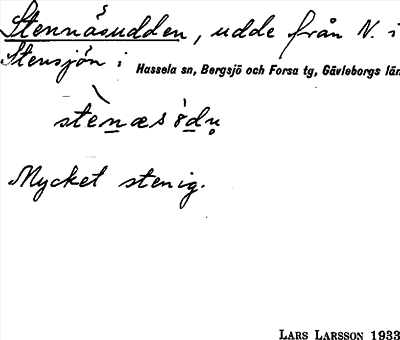 Stennäsudden, udde från N. i
Stensjön i Hassela sn, Bergsjö och Forsa tg, Gävleborgs län
Mycket stenig.
LARS LARSSON 1933